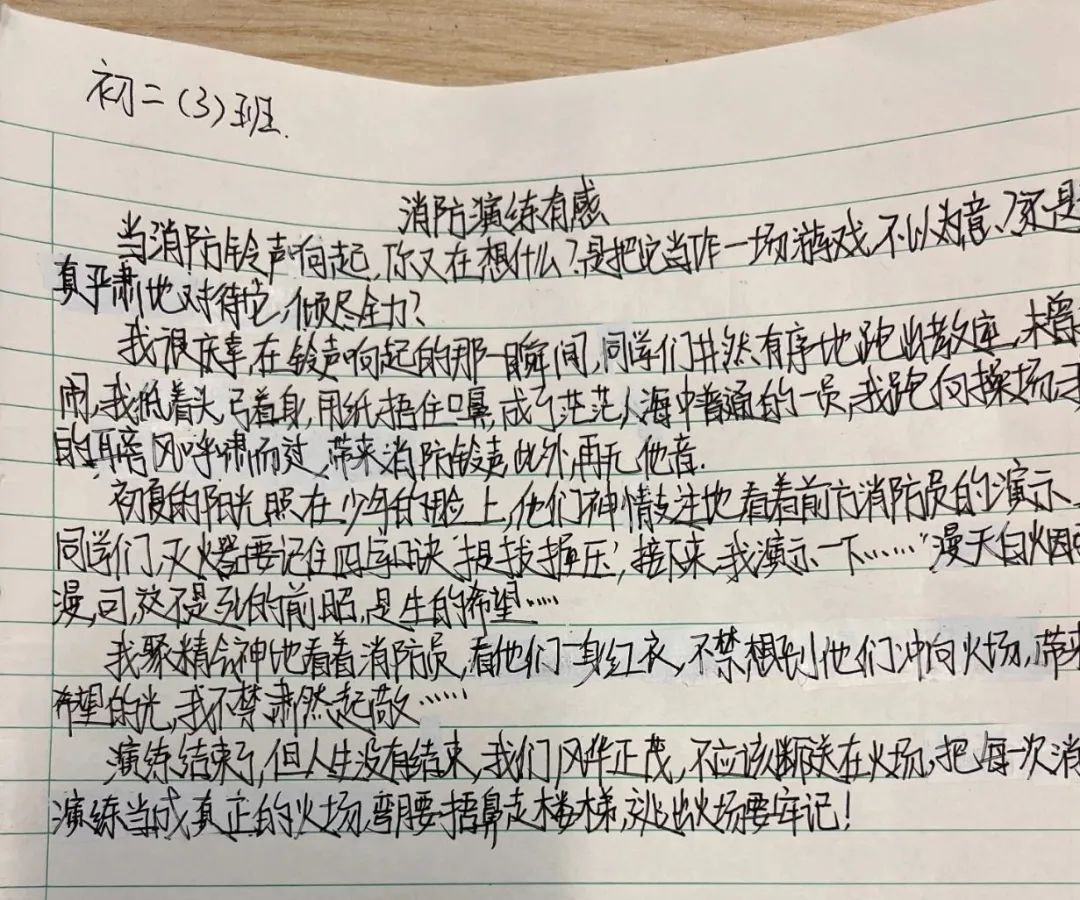 初二(3)班.
消防演练有感
当消防铃声响起,你又在想什么?是把它当作一场游戏,不以为意?还是
真严肃地对待它,倾尽全力?
我很庆幸,在铃声响起的那一瞬间,同学们井然有序地跑出教室,未曾
闹,我低着头,弓着身,用纸捂住口鼻,成了茫茫人海中普通的一员,我跑向操场,
的耳旁风呼啸而过,带来消防铃声,此外,再无他音.
初夏的阳光照在少年的脸上,他们神情专注地看着前方消防员的演示
同学们,灭火器要记住四字口诀‘提拔握压’,接下来,我演示一下……”漫天白烟
漫,可这不是死的前昭,是生的希望……
我聚精会神地看着消防员,看他们一身红衣,不禁想到他们冲向火场,带来
希望的光,我不禁肃然起敬……
演练结束了,但人生没有结束,我们风华正茂,不应该断送在火场,把每一次消
演练当成真正的火场,弯腰捂鼻走楼梯,逃出火场要牢记!